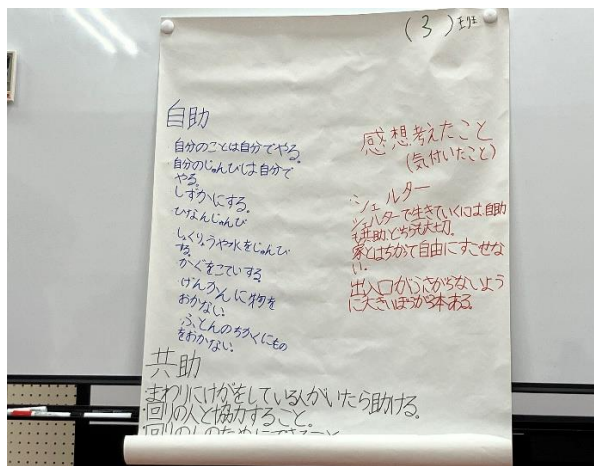 (3)班
自助
自分のことは自分でやる。
自分のじゅんびは自分で
やる。
しずかにする。
ひなんじゅんび
しょくりょうや水をじゅんび
する。
かぐをこていする
げんかんに物を
おかない。
ふとんのちかくにもの
をおかない。
共助
まわりにけがをしている人がいたら助ける。
・回りの人と協力すること。
感想考えたこと
(気付いたこと)
シェルター
シェルターで生きていくには、自助
も共助、どちらも大切。
家とはちがって自由にすごせな
い。
出入口がふさがらないよう
に大きい
本ある。